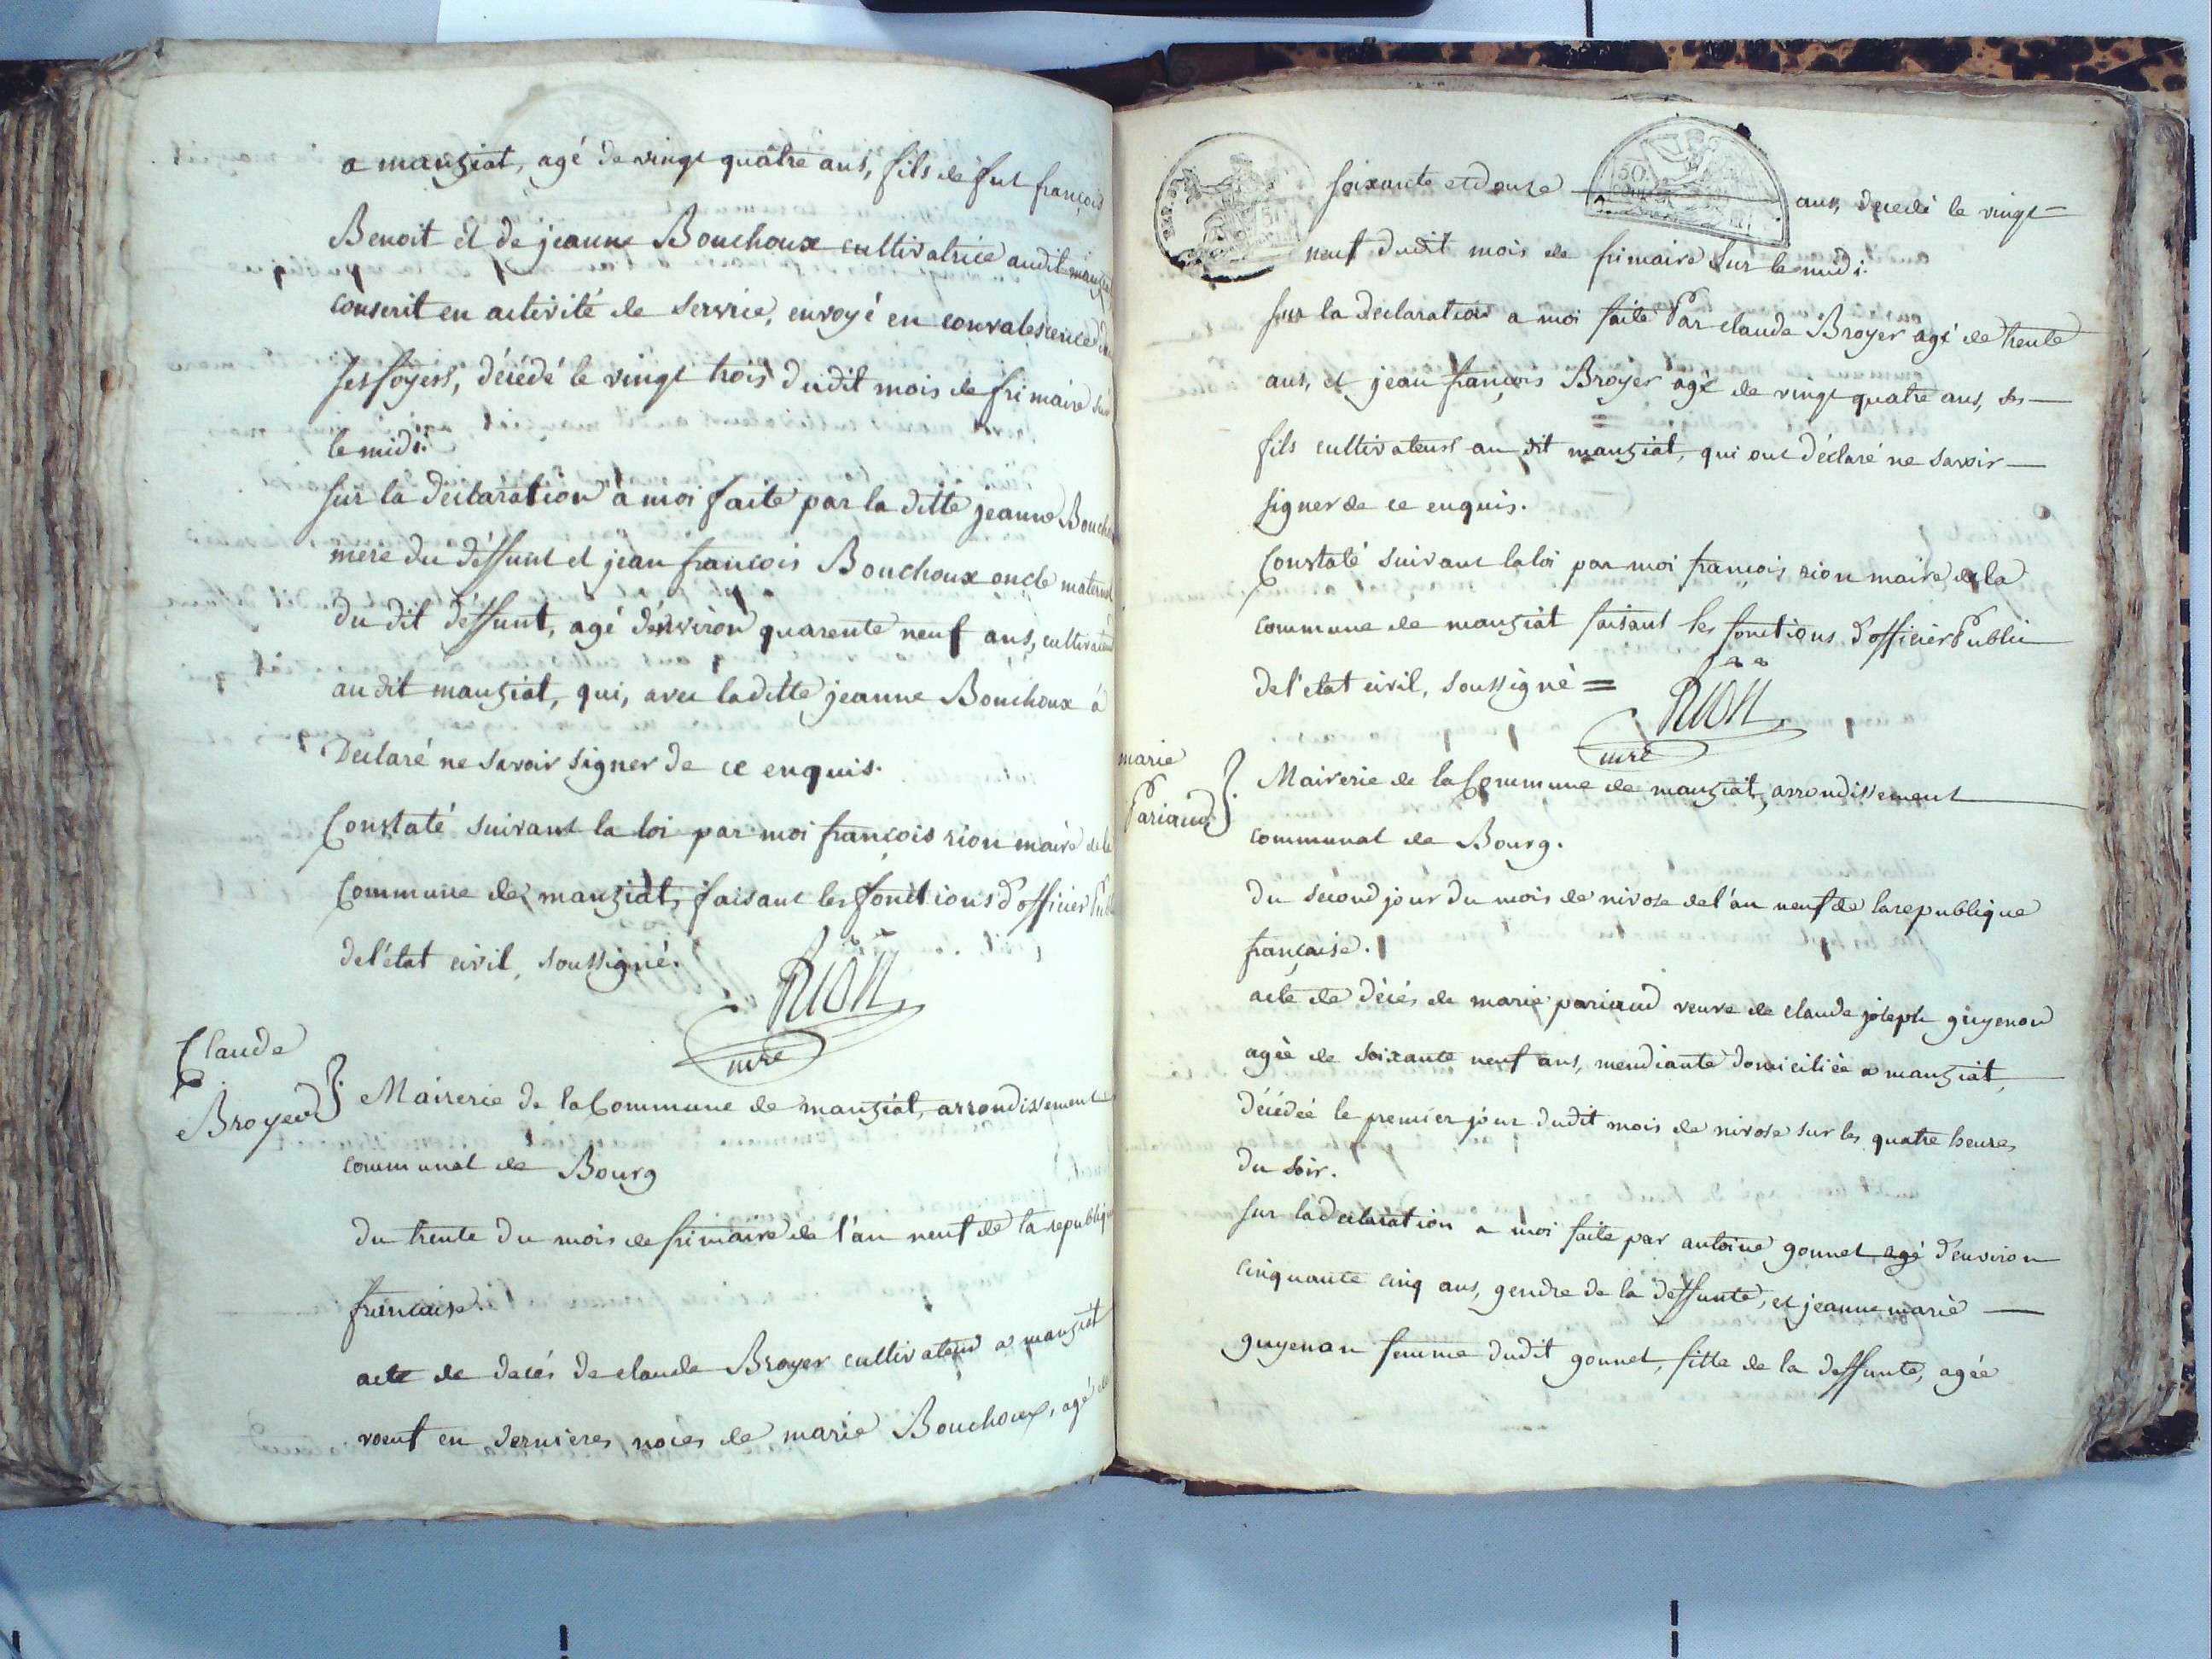 a manziat, agé de vingt quâtre ans, fils de fut françois
Benoit et de jeanne Bouchoux cultivatrice audit manziat
conscrit en activité de service, envoyé en convalescence dans
ses foyers, décédé le vingt trois dudit mois de frimaire sur
le midi.
Sur la declaration à moi faite par la ditte jeanne Bouchoux
mere du déffunt et jean françois Bouchoux oncle maternel
du dit déffunt, agé d'environ quarente neuf ans, cultivateur
au dit manziat, qui, avec la ditte jeanne Bouchoux à
Declaré ne savoir signer de ce enquis.
Constaté suivant la loi par moi françois rion maire de la
Commune de manziat, faisant les fonctions d'officier Public
de l'état civil, soussigné.
Rion
mre
Claude
Broyer
Mairerie de la Commune de manziat, arrondissement
communal de Bourg
du trente du mois de frimaire de l'an neuf de la republique
française.
acte de decés de claude Broyer cultivateur a manziat
veuf en dernieres noces de marie Bouchoux, agé de
soixante et douze ans, decedé le vingt
neuf dudit mois de frimaire sur le midi.
Sur la declaration a moi faite Par claude Broyer agé de trente
ans, et jean françois Broyer agé de vingt quatre ans, ses
fils cultivateurs au dit manziat, qui ont déclaré ne savoir
signer de ce enquis.
Constaté suivant la loi par moi françois rion maire de la
commune de manziat faisant les fonctions d'officier Public
de l'etat civil, soussigné =
Rion
mre
marie
Pariaud
Mairerie de la Commune de manziat, arrondissement
communal de Bourg.
du second jour du mois de nivose de l'an neuf de la republique
française.
acte de décés de marie pariaud veuve de claude joseph guyenon
agée de soixante neuf ans, mendiante domiciliée a manziat,
décédée le premier jour dudit mois de nivose sur les quatre heures
du soir.
sur la declaration a moi faite par antoine gonnet agé d'environ
cinquante cinq ans, gendre de la deffunte, et jeanne marie
guyenon femme dudit gonnet, fille de la deffunte, agée